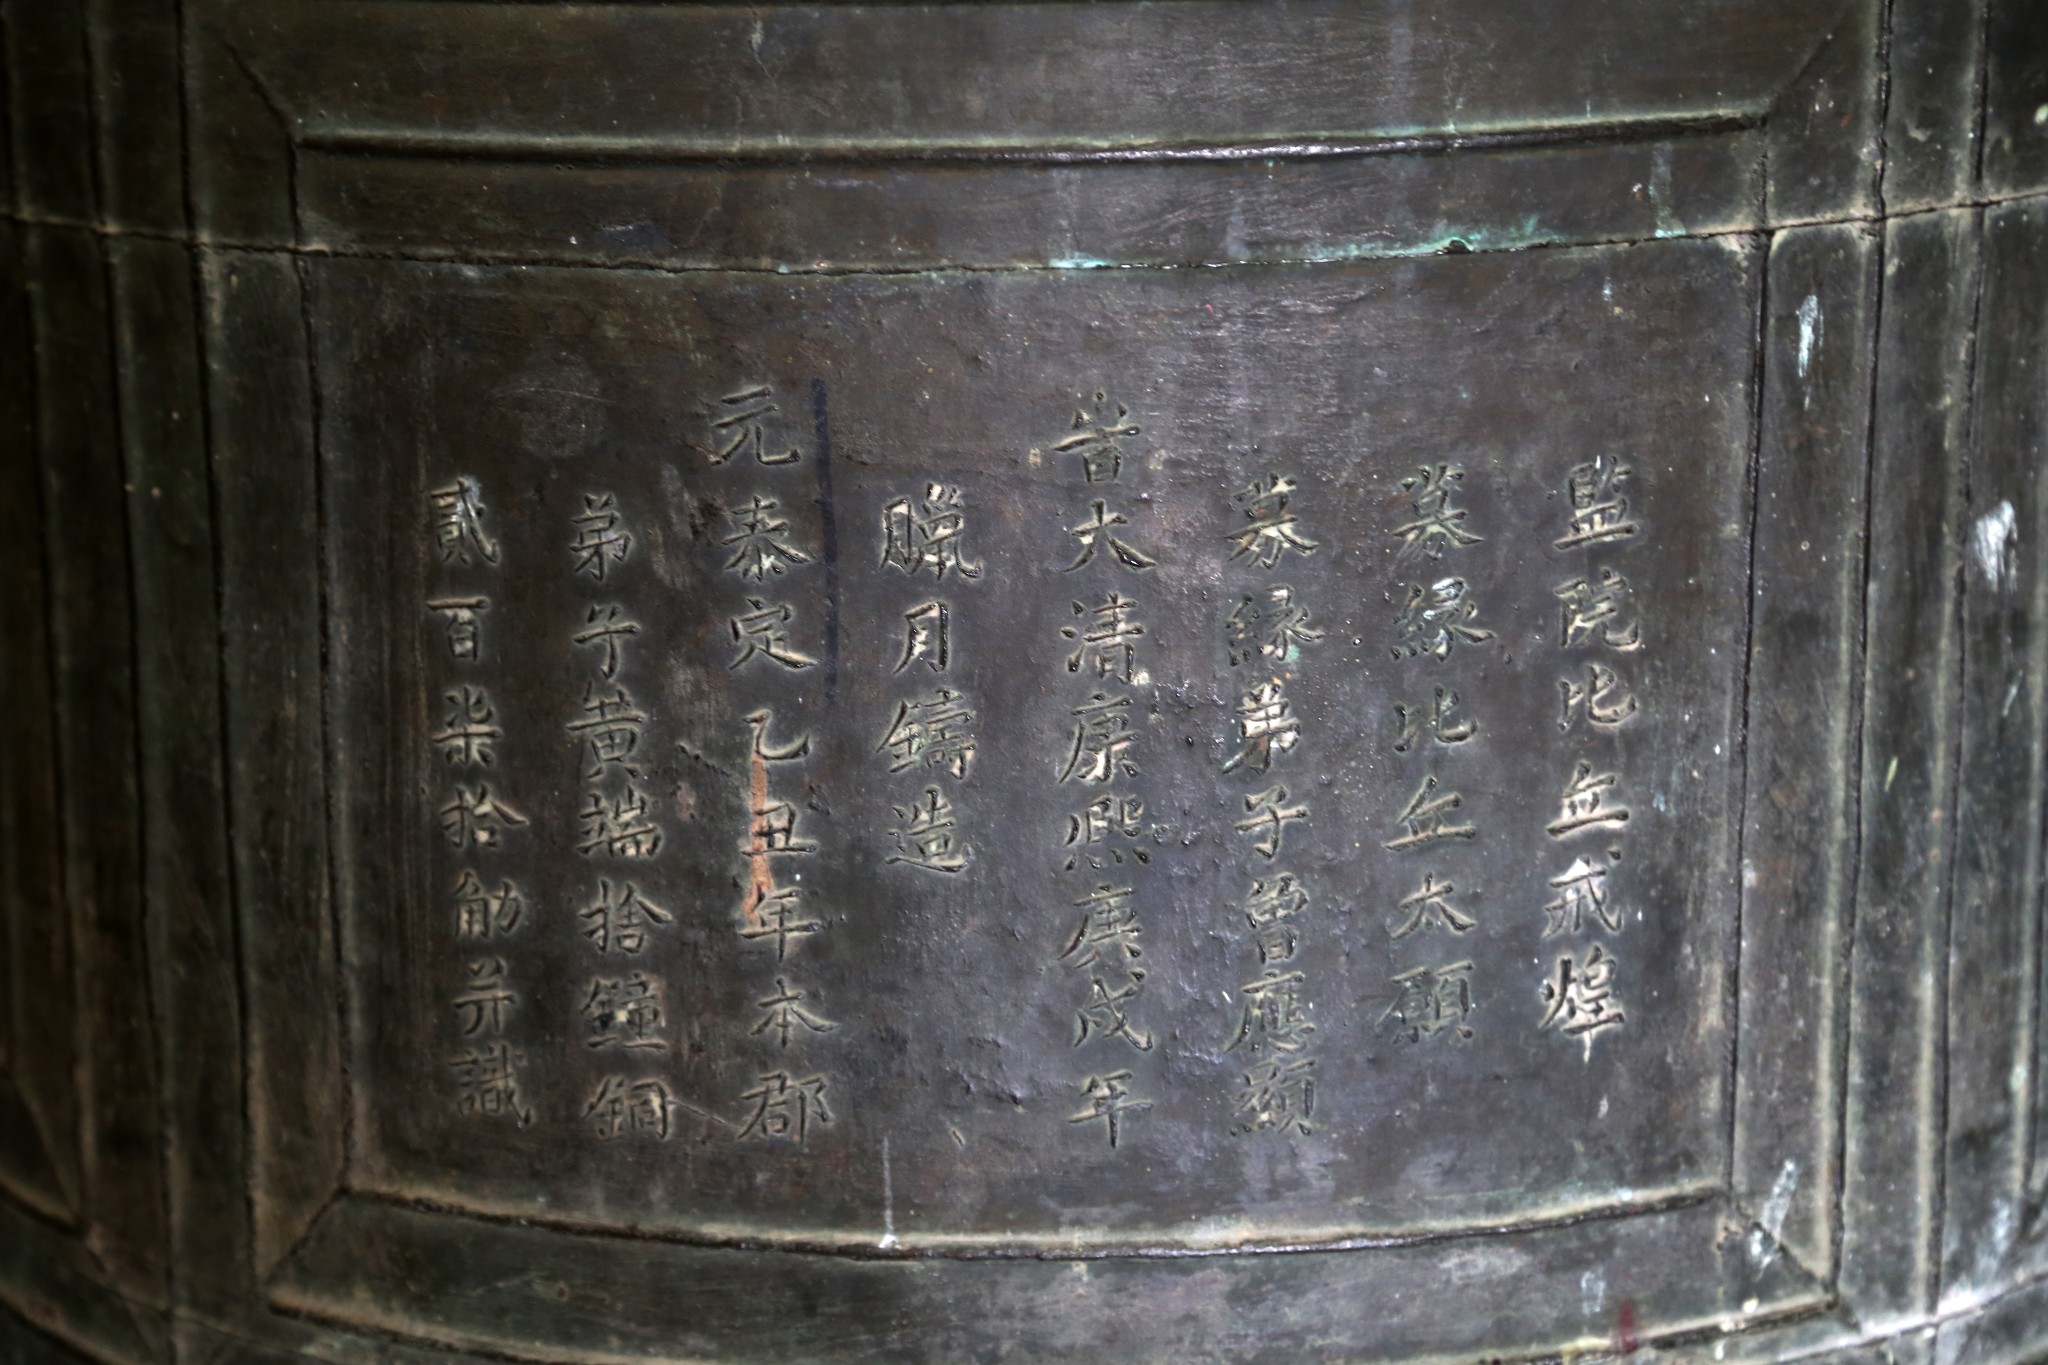 監院比丘戒煌
募緣比丘太願
募緣弟子曾應顯
旹大清康熙庚戌年
臘月鑄造
元泰定乙丑年本郡
弟子黃端捨鐘銅
貳百柒拾觔并識